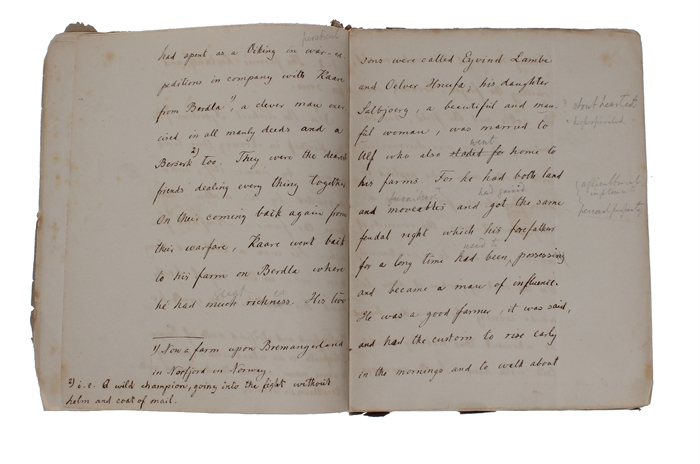 had spent as a Viking on war-ex-
peditions in company with Kaare
from Berdla 1), a clever man exer-
cised in all manly deeds and a
Berserk 2) too. They were the dearest
friends dealing every thing together
On their coming back again from
their warfare, Kaare went back
to his farm on Berdla where
he had much richness. His two
1) Now a farm upon Bremangerland
in Norfjord in Norway.
2) i.e. A wild champion, going into the fight without
helm and coat of mail.
sons were called Eyvind Lambe
and Oelver Hnufa; his daughter
Salbjoerg, a beautiful and man-
ful woman, was married to
stouthearted
highspirited
went
Ulf who also stadet for home to
his farms. For he had both land
agricultural
implements
furniture had gained
and moveables and got the same
personal property
feudal right which his forefathers
used to
for a long time had been possessing
and became a man of influence.
He was a good farmer, it was said,
and had the custom to rise early
in the mornings and to walk about